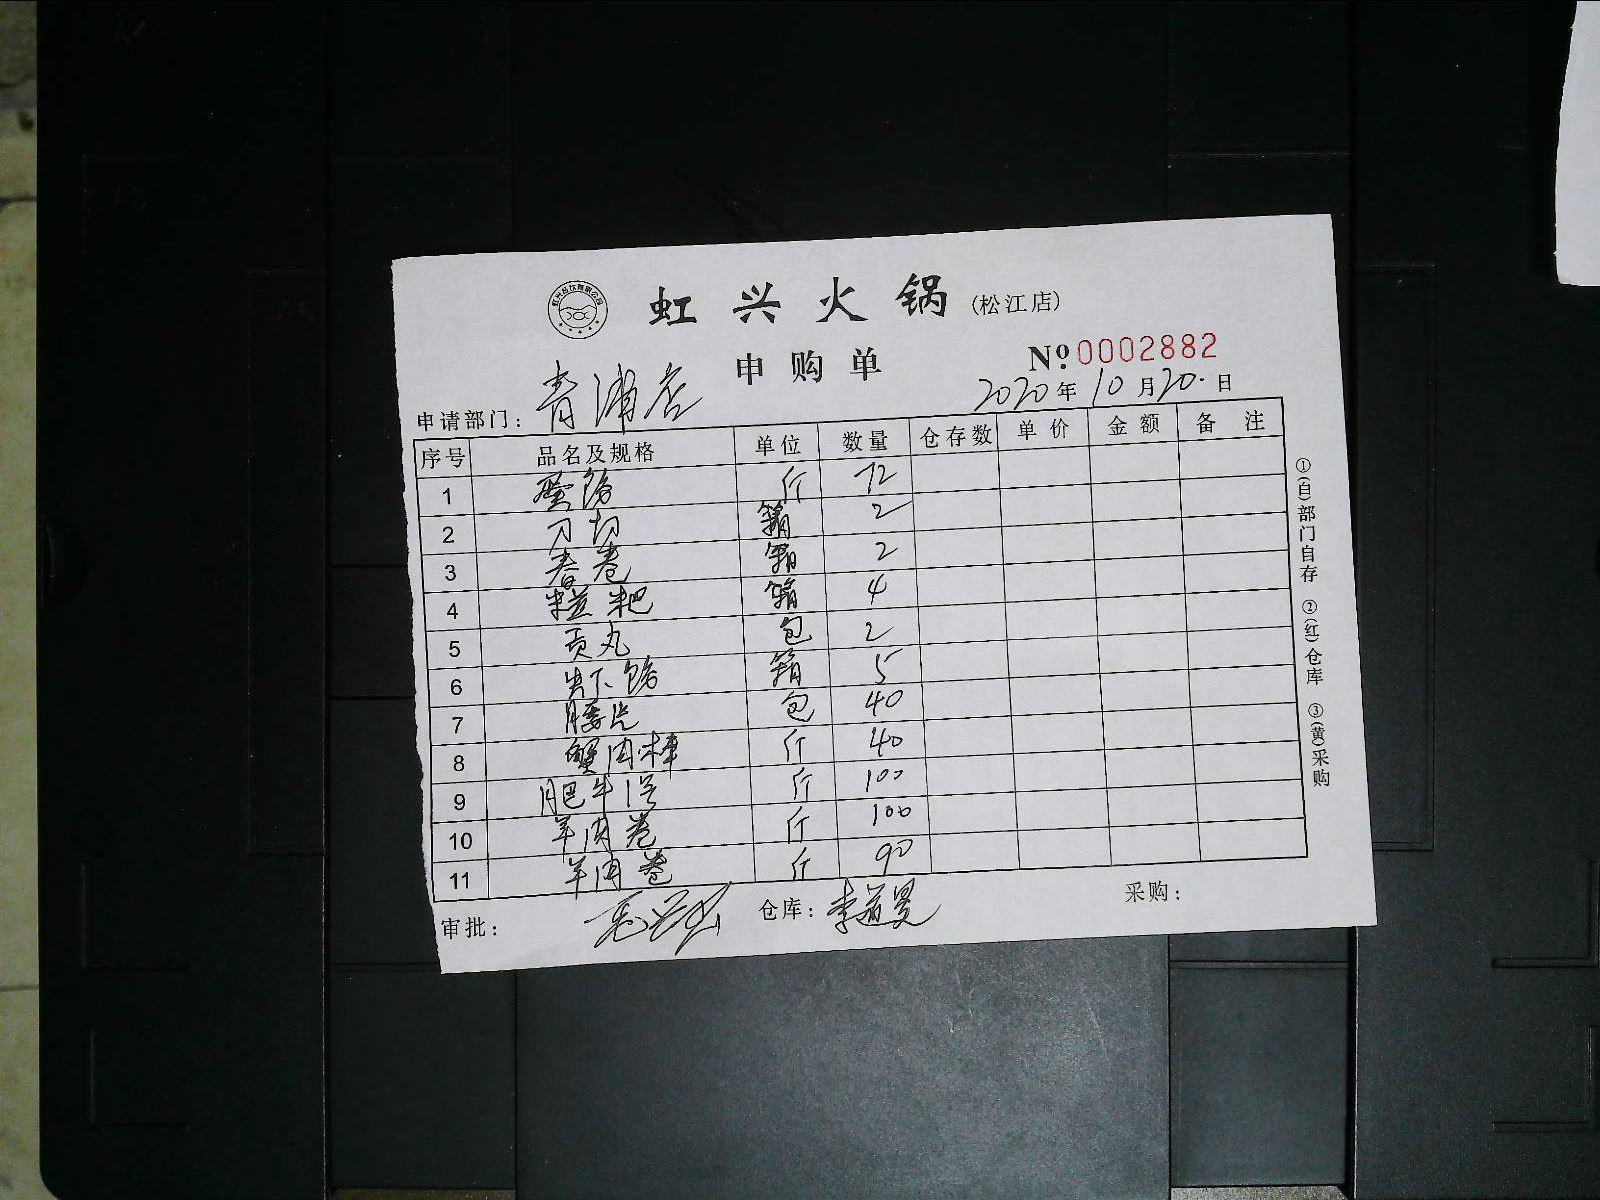 虹兴火锅(松江店)
申购单
No 0002882
2020年10月20日
申请部门: 青浦店
序号 品名及规格 单位 数量 仓存数 单价 金额 备注
1 斤 72
2 刀切 箱 2
3 春卷 箱 2
4 糍粑 箱 4
5 贡丸 包 2
6 箱 5
7 腰片 包 40
8 蟹肉棒 斤 40
9 肥牛1号 斤 100
10 羊肉卷 斤 100
11 羊肉卷 斤 90
审批: 仓库: 采购:
①(白)部门自存 ②(红)仓库 ③(黄)采购